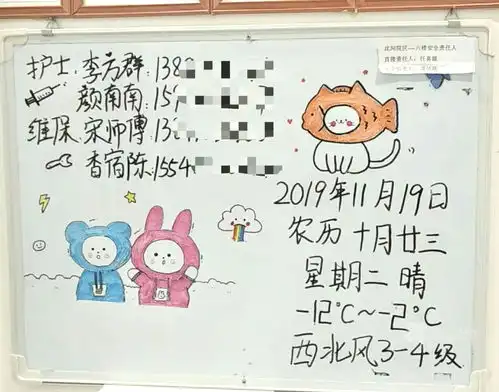 护士:李芳群:138
颜南南:15
维保:宋师傅:13
香宿陈:1554
此间院区—六楼安全责任人
直接责任人:任真颖
2019年11月19日
农历十月廿三
星期二 晴
-12℃~-2℃
西北风3-4级